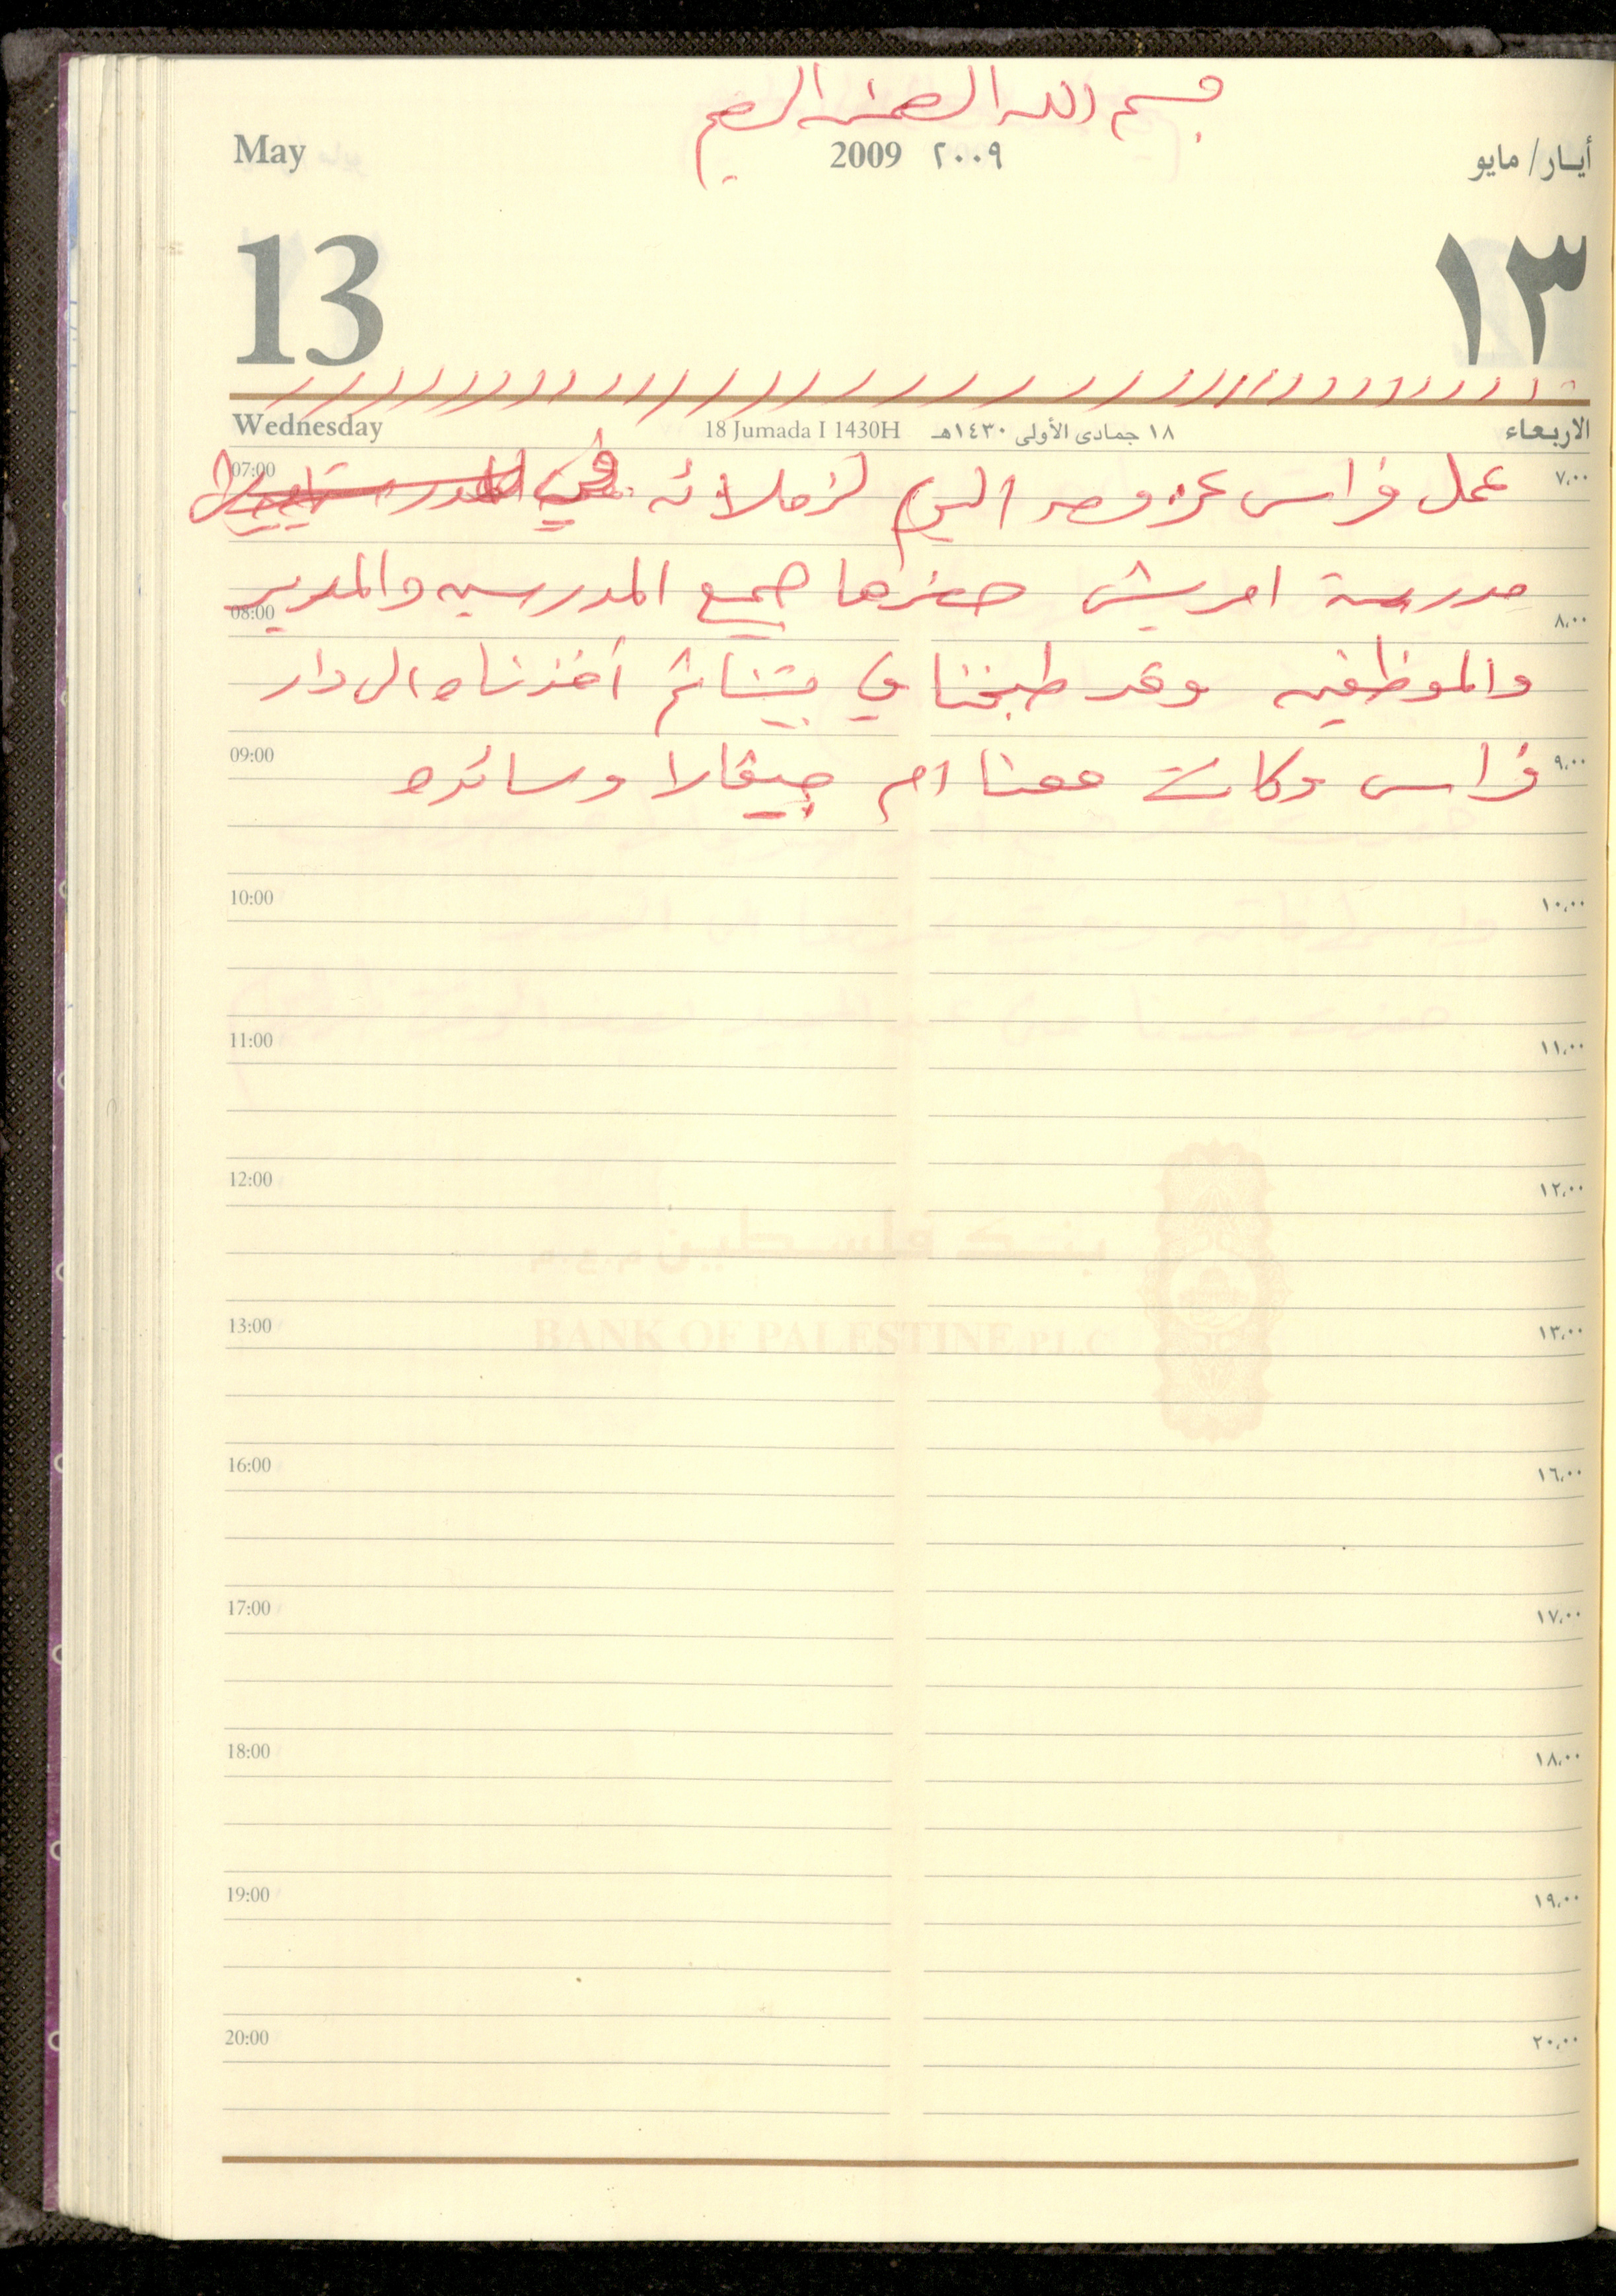 بسم الله الرحمن الرحيم
May 2009 ٢٠٠٩ أيار/ مايو
13 ١٣
Wednesday 18 Jumada I 1430H ١٨ جمادى الأولى ١٤٣٠هـ الاربعاء
07:00 عمل فراس عزومه اليوم لزملائه في المدرسة ٧,٠٠
مدرسة امريش حضرها جميع المدرسين والمدير
08:00 ٨,٠٠
والموظفين وقد طبخنا في بيتنا ثم أخذناه الى دار
09:00 فراس وكانت معنا ام جيفارا وسائده ٩,٠٠
10:00 ١٠,٠٠
11:00 ١١,٠٠
12:00 ١٢,٠٠
BANK OF PALESTINE P.L.C
13:00 ١٣,٠٠
16:00 ١٦,٠٠
17:00 ١٧,٠٠
18:00 ١٨,٠٠
19:00 ١٩,٠٠
20:00 ٢٠,٠٠